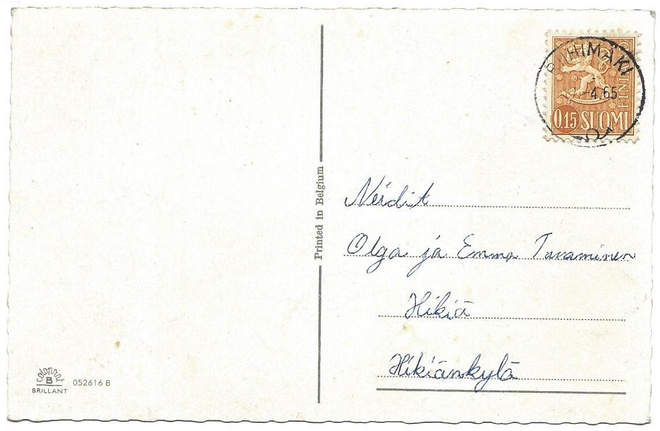 RIIHIMÄKI
4.65
FINLAND
0,15 SUOMI
Printed in Belgium
Neidit
Olga ja Emma Turaminen
Hikiä
Hikiänkylä
colorprint
B
BRILLANT
052616 B